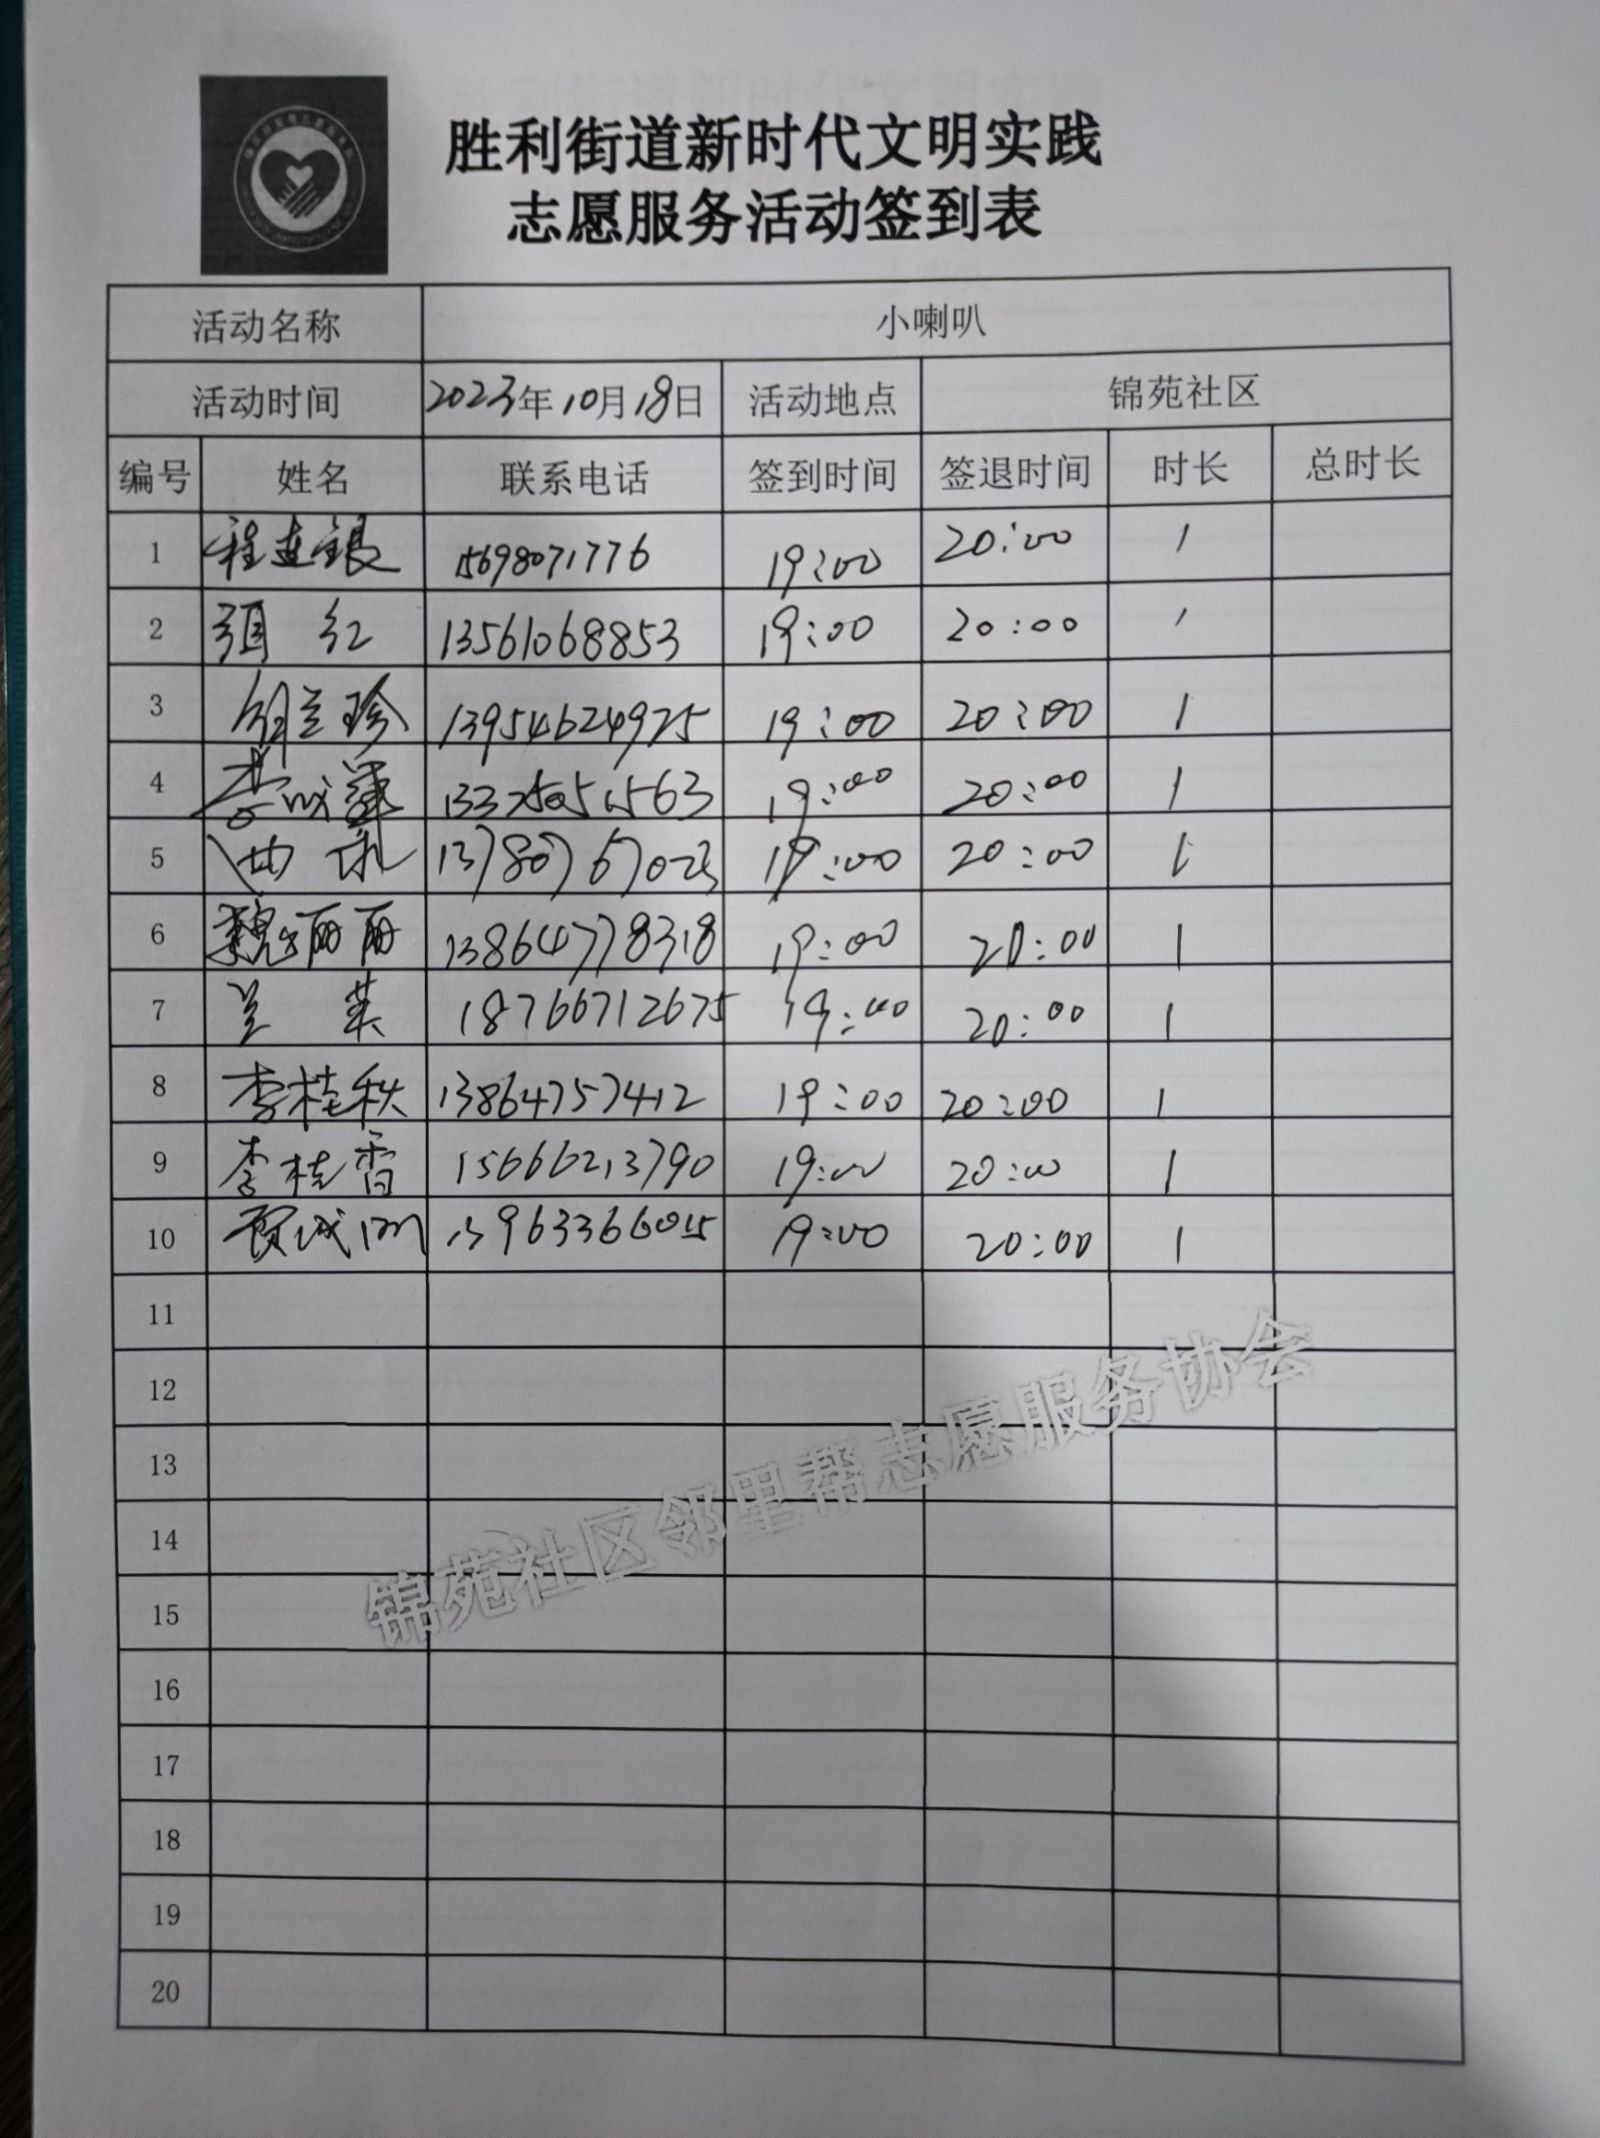 胜利街道新时代文明实践
志愿服务活动签到表
活动名称 小喇叭
活动时间 2023年10月18日 活动地点 锦苑社区
编号 姓名 联系电话 签到时间 签退时间 时长 总时长
1 程连银 15698071776 19:00 20:00 1
2 张红 13561068853 19:00 20:00 1
3 兰珍 13954624975 19:00 20:00 1
4 19:00 20:00 1
5 13780767023 19:00 20:00 1
6 魏丽丽 13864778318 19:00 20:00 1
7 兰英 18766712675 19:00 20:00 1
8 李桂秋 13864757412 19:00 20:00 1
9 李桂香 15666213790 19:00 20:00 1
10 13963366015 19:00 20:00 1
11
12
13
14
15
16
17
18
19
20
锦苑社区邻里帮志愿服务协会